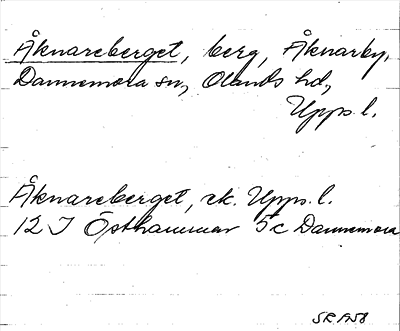 Åknareberget, berg, Åknarby,
Dannemora sn, Olands hd,
Upps. l.
Åknareberget, ek. Upps. l.
12 I Östhammar 5c Dannemora
SR 1958